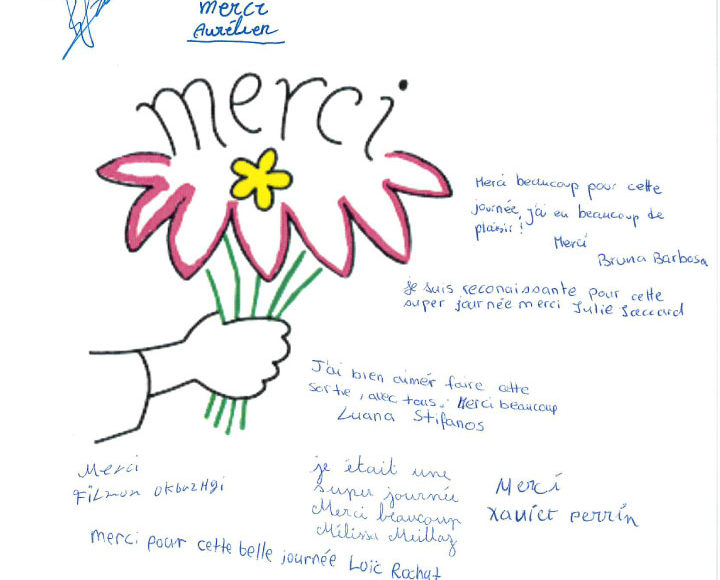 merci
Aurélien
merci
Merci beaucoup pour cette
journée, j'ai eu beaucoup de
plaisir !
Merci
Bruna Barbosa
je suis reconaissante pour cette
super journée merci Julie Saccard
J'ai bien aimér faire cette
sortie, avec tous. Merci beaucoup
Luana Stifanos
Merci
Filmon Okbazhgi
je était une
super journée
Merci beaucoup
Mélissa Meillaz
Merci
Xavier perrin
merci pour cette belle journée Loïc Rochat